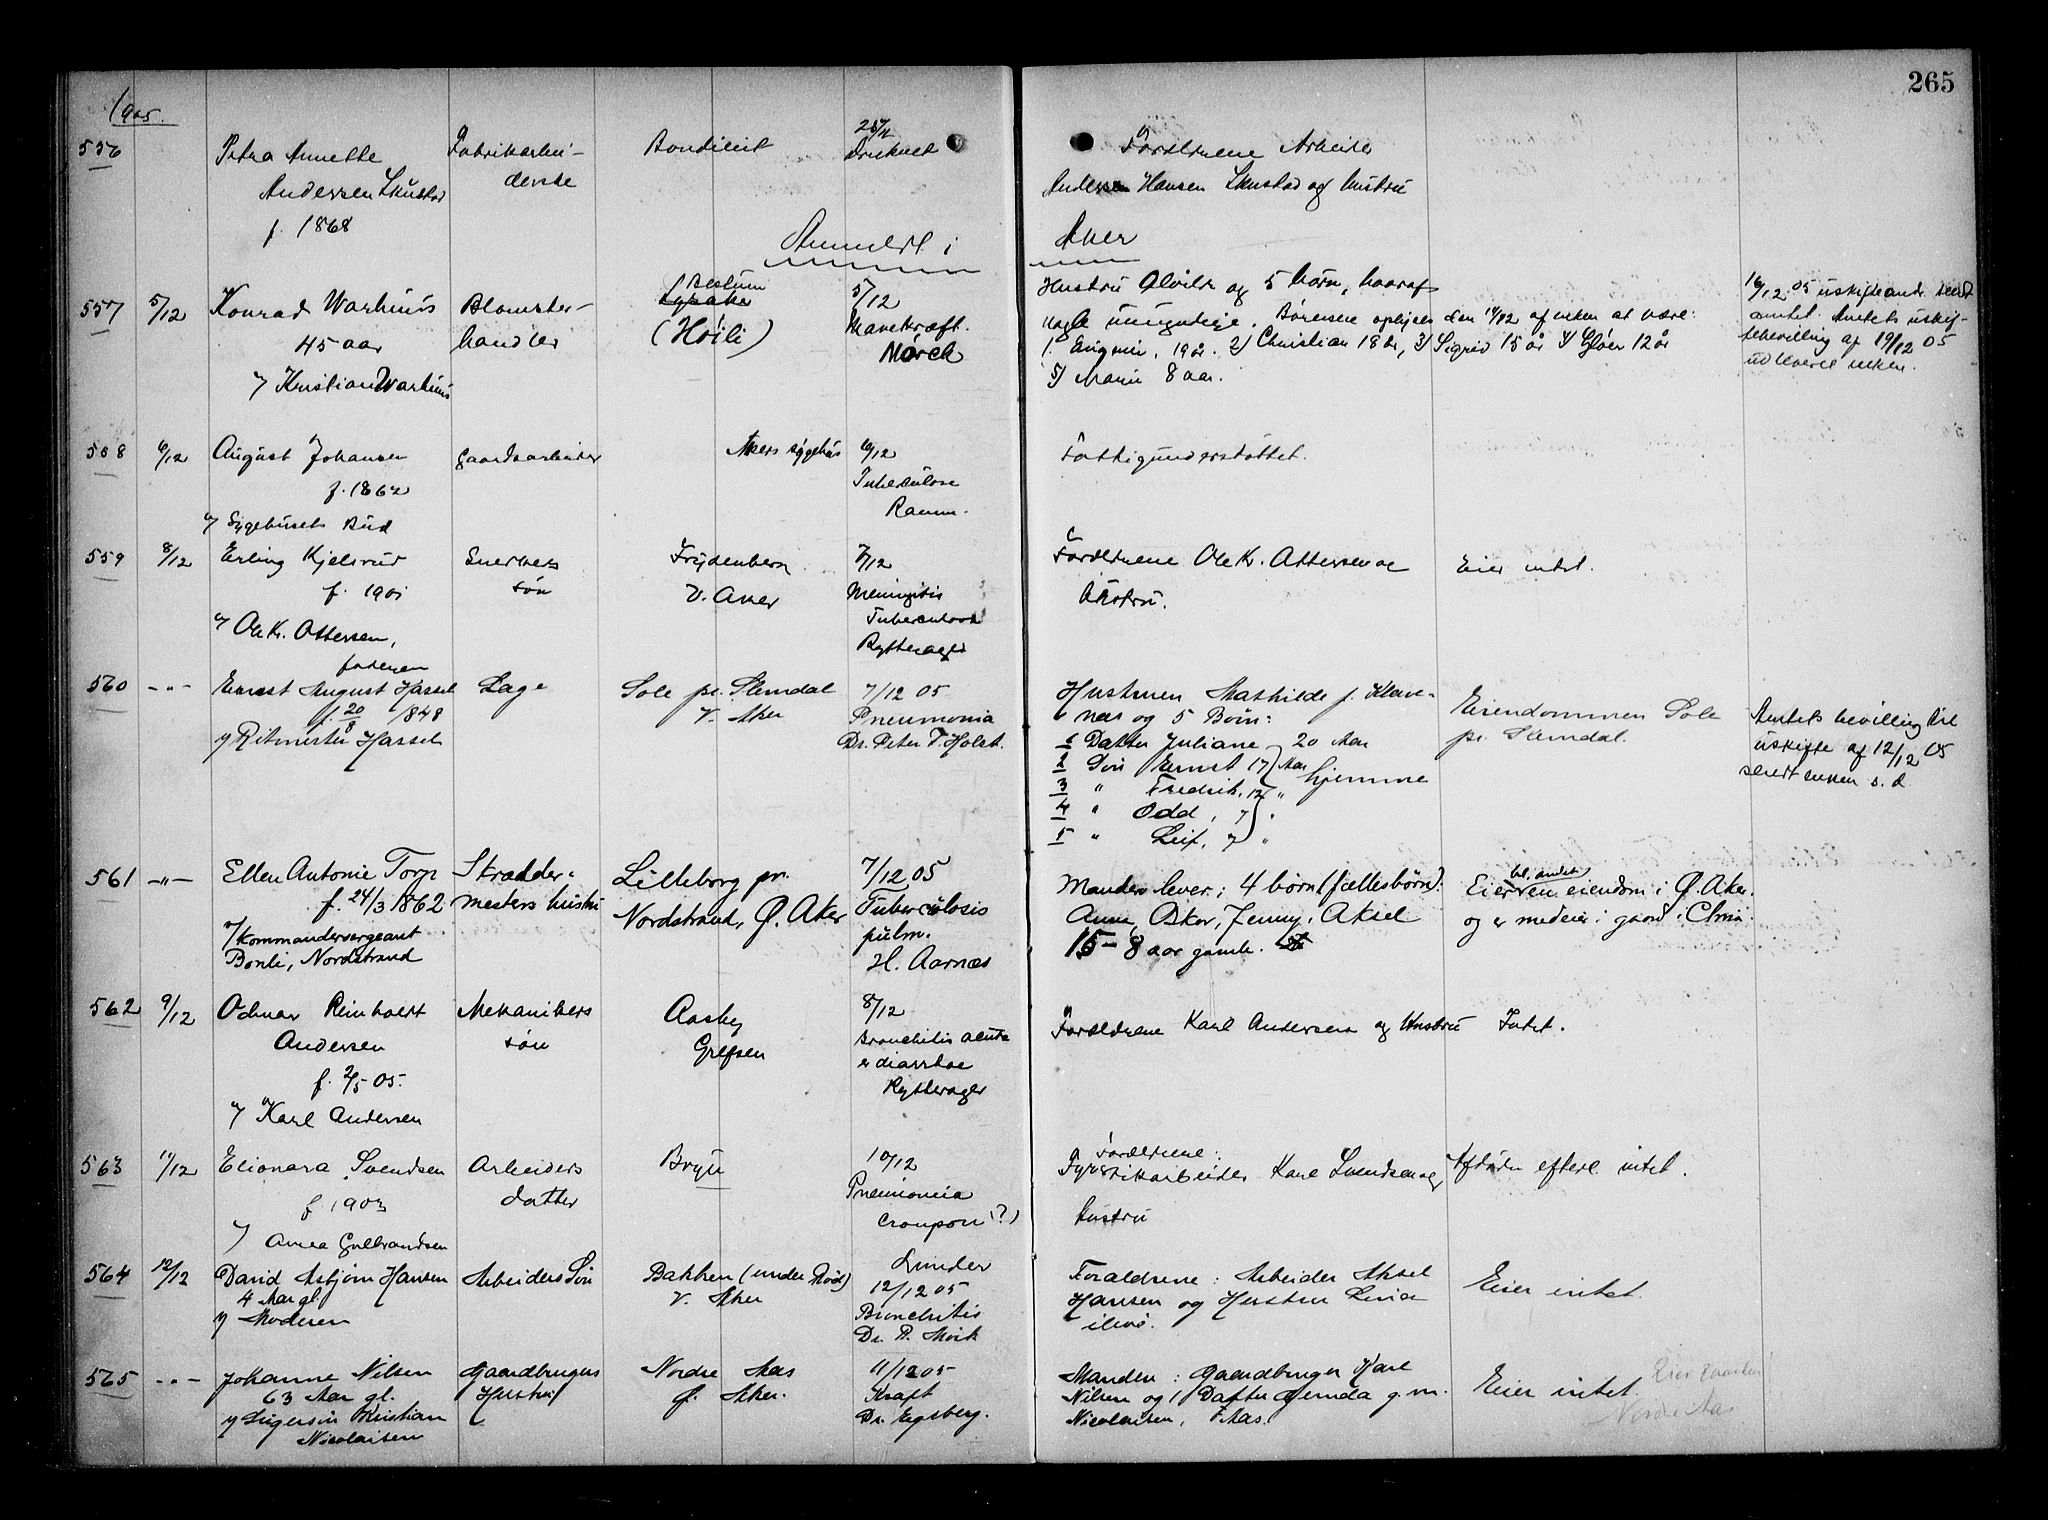 265
1905.
556
Petra Annette
Andersen Skustad
f. 1868
Fabrikarbei-
derske
28/11
Druknet
Forældrene Arbeider
Hansen Skustad og Hustru
Anmeldt i
Aker
557
5/12
Konrad Warhuus
45 aar
v/ Kristian Warhuus
Blomster-
handler
Bestum
(Høili)
5/12
Mavekræft.
Mørch
Hustru Alvilde og 5 børn, hvoraf
nogle umyndige. Børnene oplyses den 14/12 af enken at være:
1. 19 år. 2) Christian 18 år, 3) Sigrid 15 år 4) 12 år
5) Marie 8 aar.
16/12 05 uskifteandr. sendt
amtet. Amtets uskif-
tebevilling af 19/12 05
udleveret enken.
558
6/12
August Johansen
f. 1862
v/ Sygehusets Bud
Gaardsarbeider
Akers sygehus
6/12
Tuberculose
Ramm.
Fattigunderstøttet.
559
8/12
Erling Kjelsrud
f. 1901
v/ Ole Kr. Ottersen,
faderen
Snerkers
søn
Frydenberg
V. Aker
7/12
Meningitis
Tuberculosa
Rytterager
Forældrene Ole Kr. Ottersen og
Hustru.
Eier intet.
560
-"-
Ernst August Hassel
f. 20/8 1848
v/ Ritmester Hassel
Læge
Sole pr. Slemdal
V. Aker
7/12 05
Pneumonia
Dr. Peter F. Holst.
Hustruen Mathilde f. Klave-
nes og 5 Børn:
1 Datter Juliane 20 Aar
2 Søn Ernst 17 Aar
3 " Fredrik, 12 " hjemme
4 " Odd, 7 "
5 " Leif, 7 "
Eiendommen Sole
pr. Slemdal.
Amtets bevilling til
uskifte af 12/12 05
sendt enken s. d.
561
-"-
Ellen Antonie Torp
f. 24/3 1862
v/ Kommandersergeant
Bonli, Nordstrand
Skrædder-
mesters hustru
Lilleborg pr.
Nordstrand, Ø. Aker
7/12 05
Tuberculosis
pulm.
H. Aarnæs
Manden lever; 4 børn (fællesbørn).
Anna, Oskar, Jenny, Aksel
15 - 8 aar gamle.
bl. andet
Eier en eiendom i Ø. Aker.
og er medeier i gaard i Chria.
562
9/12
Odmar Reinholdt
Andersen
f. 2/5 05.
v/ Karl Andersen
Mekanikers
søn
Aasby
Grefsen
8/12
Bronchitis acuta
et diarrhoe
Rytterager
Forældrene Karl Andersen og Hustru
Intet.
563
11/12
Elionara Svendsen
f. 1903
v/ Anna Gulbrandsen
Arbeiders
datter
Bryn
10/12
Pneumonia
crouposa (?)
Linder
Forældrene:
Fyrstikarbeider Karl Svendsen og
Hustru
Afdøde efterl. intet.
564
12/12
David Asbjørn Hansen
4 Aar gl.
v/ Moderen
Arbeiders Søn
Bakken (under Røa)
V. Aker
12/12 05
Bronchitis
Dr. R. Mørk
Forældrene: Arbeider Aksel
Hansen og Hustru Lina
ilive.
Eier intet.
565
-"-
Johanne Nilsen
63 Aar gl.
v/ Svigersøn Kristian
Nicolaisen
Gaardbrugers
Hustru
Nordre Aas
Ø. Aker.
11/12 05
Kræft
Dr. Egeberg.
Manden: Gaardbruger Karl
Nilsen og 1 Datter Gerinda g. m.
Nicolaisen, Aas.
Eier intet.
Eier gaarden
Nordre Aas